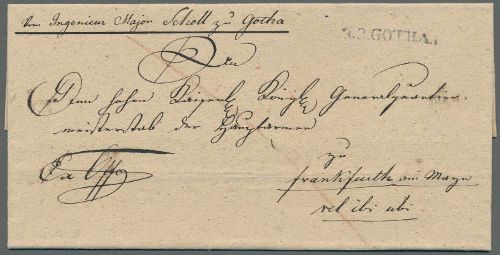 Vom Ingenieur Major Scholl zu Gotha
R.3.GOTHA.
An
Den hohen Kaiserl. Königl. Generalquartier-
meisterstab der Hauptarmee
Ex Offo
zu
Frankfurth am Mayn
vel ibi ubi